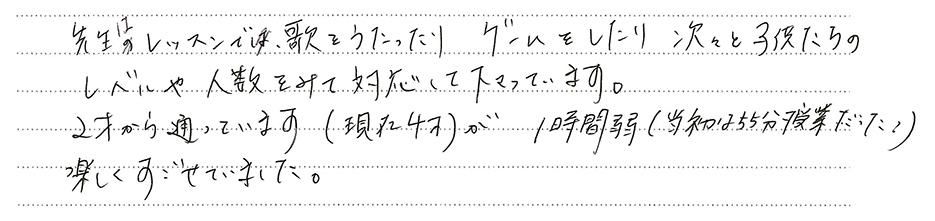 先生はレッスンでは、歌をうたったり ゲームをしたり 次々と子供たちの
レベルや人数をみて対応して下さっています。
2才から通っています(現在4才)が 1時間弱(当初は55分授業だった)
楽しくすごせていました。